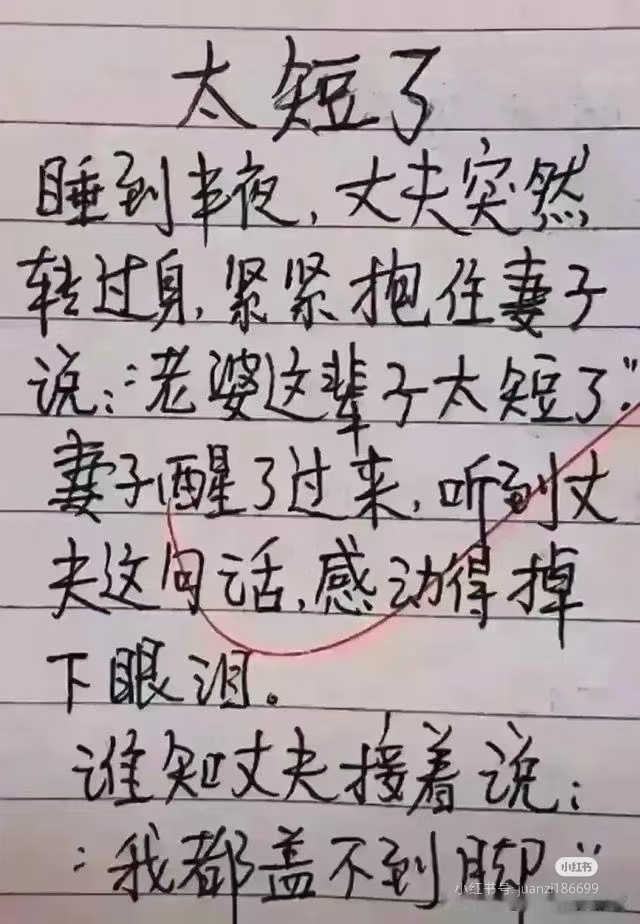 太短了
睡到半夜，丈夫突然
转过身，紧紧抱住妻子
说：“老婆这辈子太短了”。
妻子醒了过来，听到丈
夫这句话，感动得掉
下眼泪。
谁知丈夫接着说：
“我都盖不到脚”
小红书
小红书号：juanzi186699